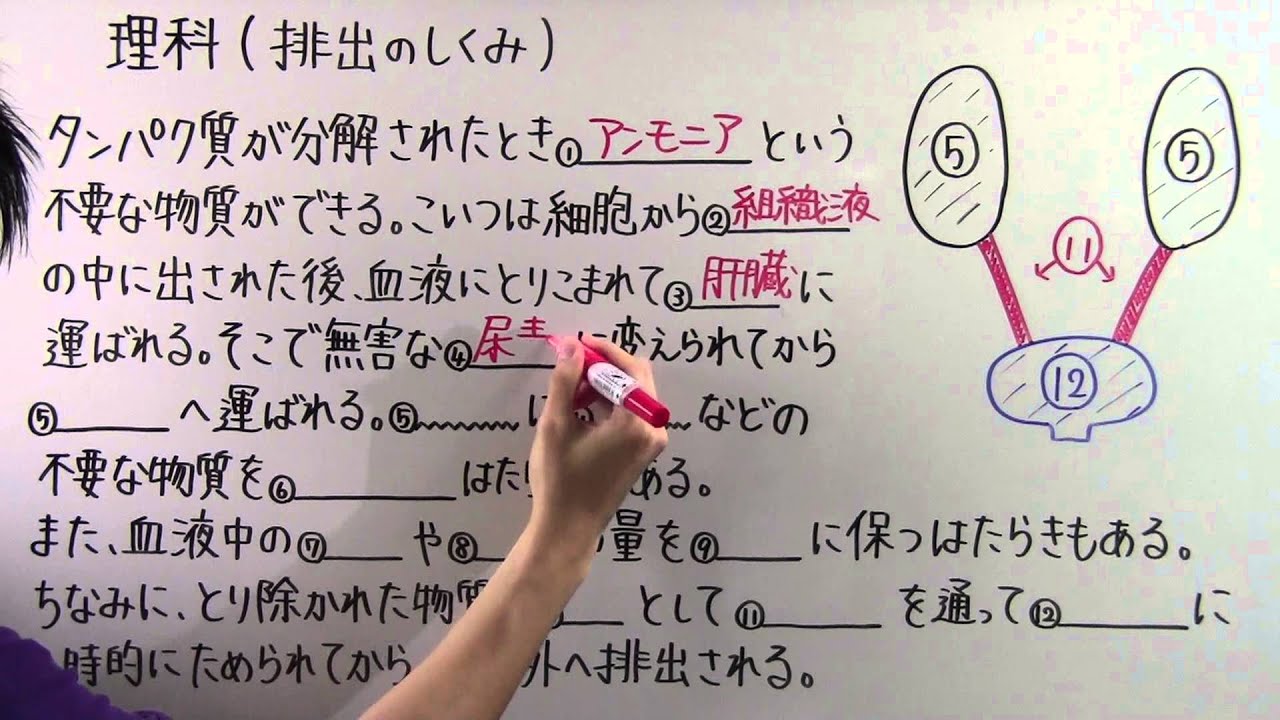 理科(排出のしくみ)
タンパク質が分解されたとき①アンモニアという
不要な物質ができる。こいつは細胞から②組織液
の中に出された後、血液にとりこまれて③肝臓に
運ばれる。そこで無害な④尿 に変えられてから
⑤______へ運ばれる。⑤ に などの
不要な物質を⑥______はたら ある。
また、血液中の⑦____や⑧ 量を⑨____に保つはたらきもある。
ちなみに、とり除かれた物質 ____として⑪______を通って⑫______に
時的にためられてから 外へ排出される。
⑤
⑤
⑪
⑫